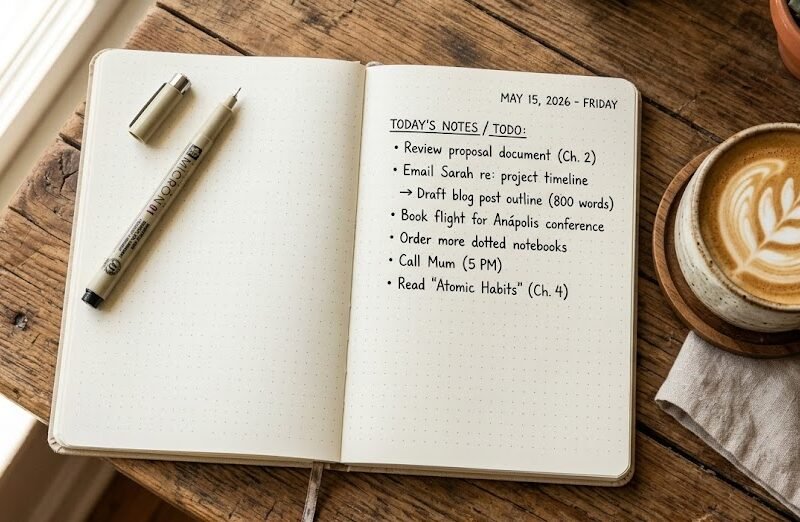 MICRON
01
MAY 15, 2026 - FRIDAY
TODAY'S NOTES / TODO:
• Review proposal document (Ch. 2)
• Email Sarah re: project timeline
→ Draft blog post outline (800 words)
• Book flight for Anápolis conference
• Order more dotted notebooks
• Call Mum (5 PM)
• Read "Atomic Habits" (Ch. 4)